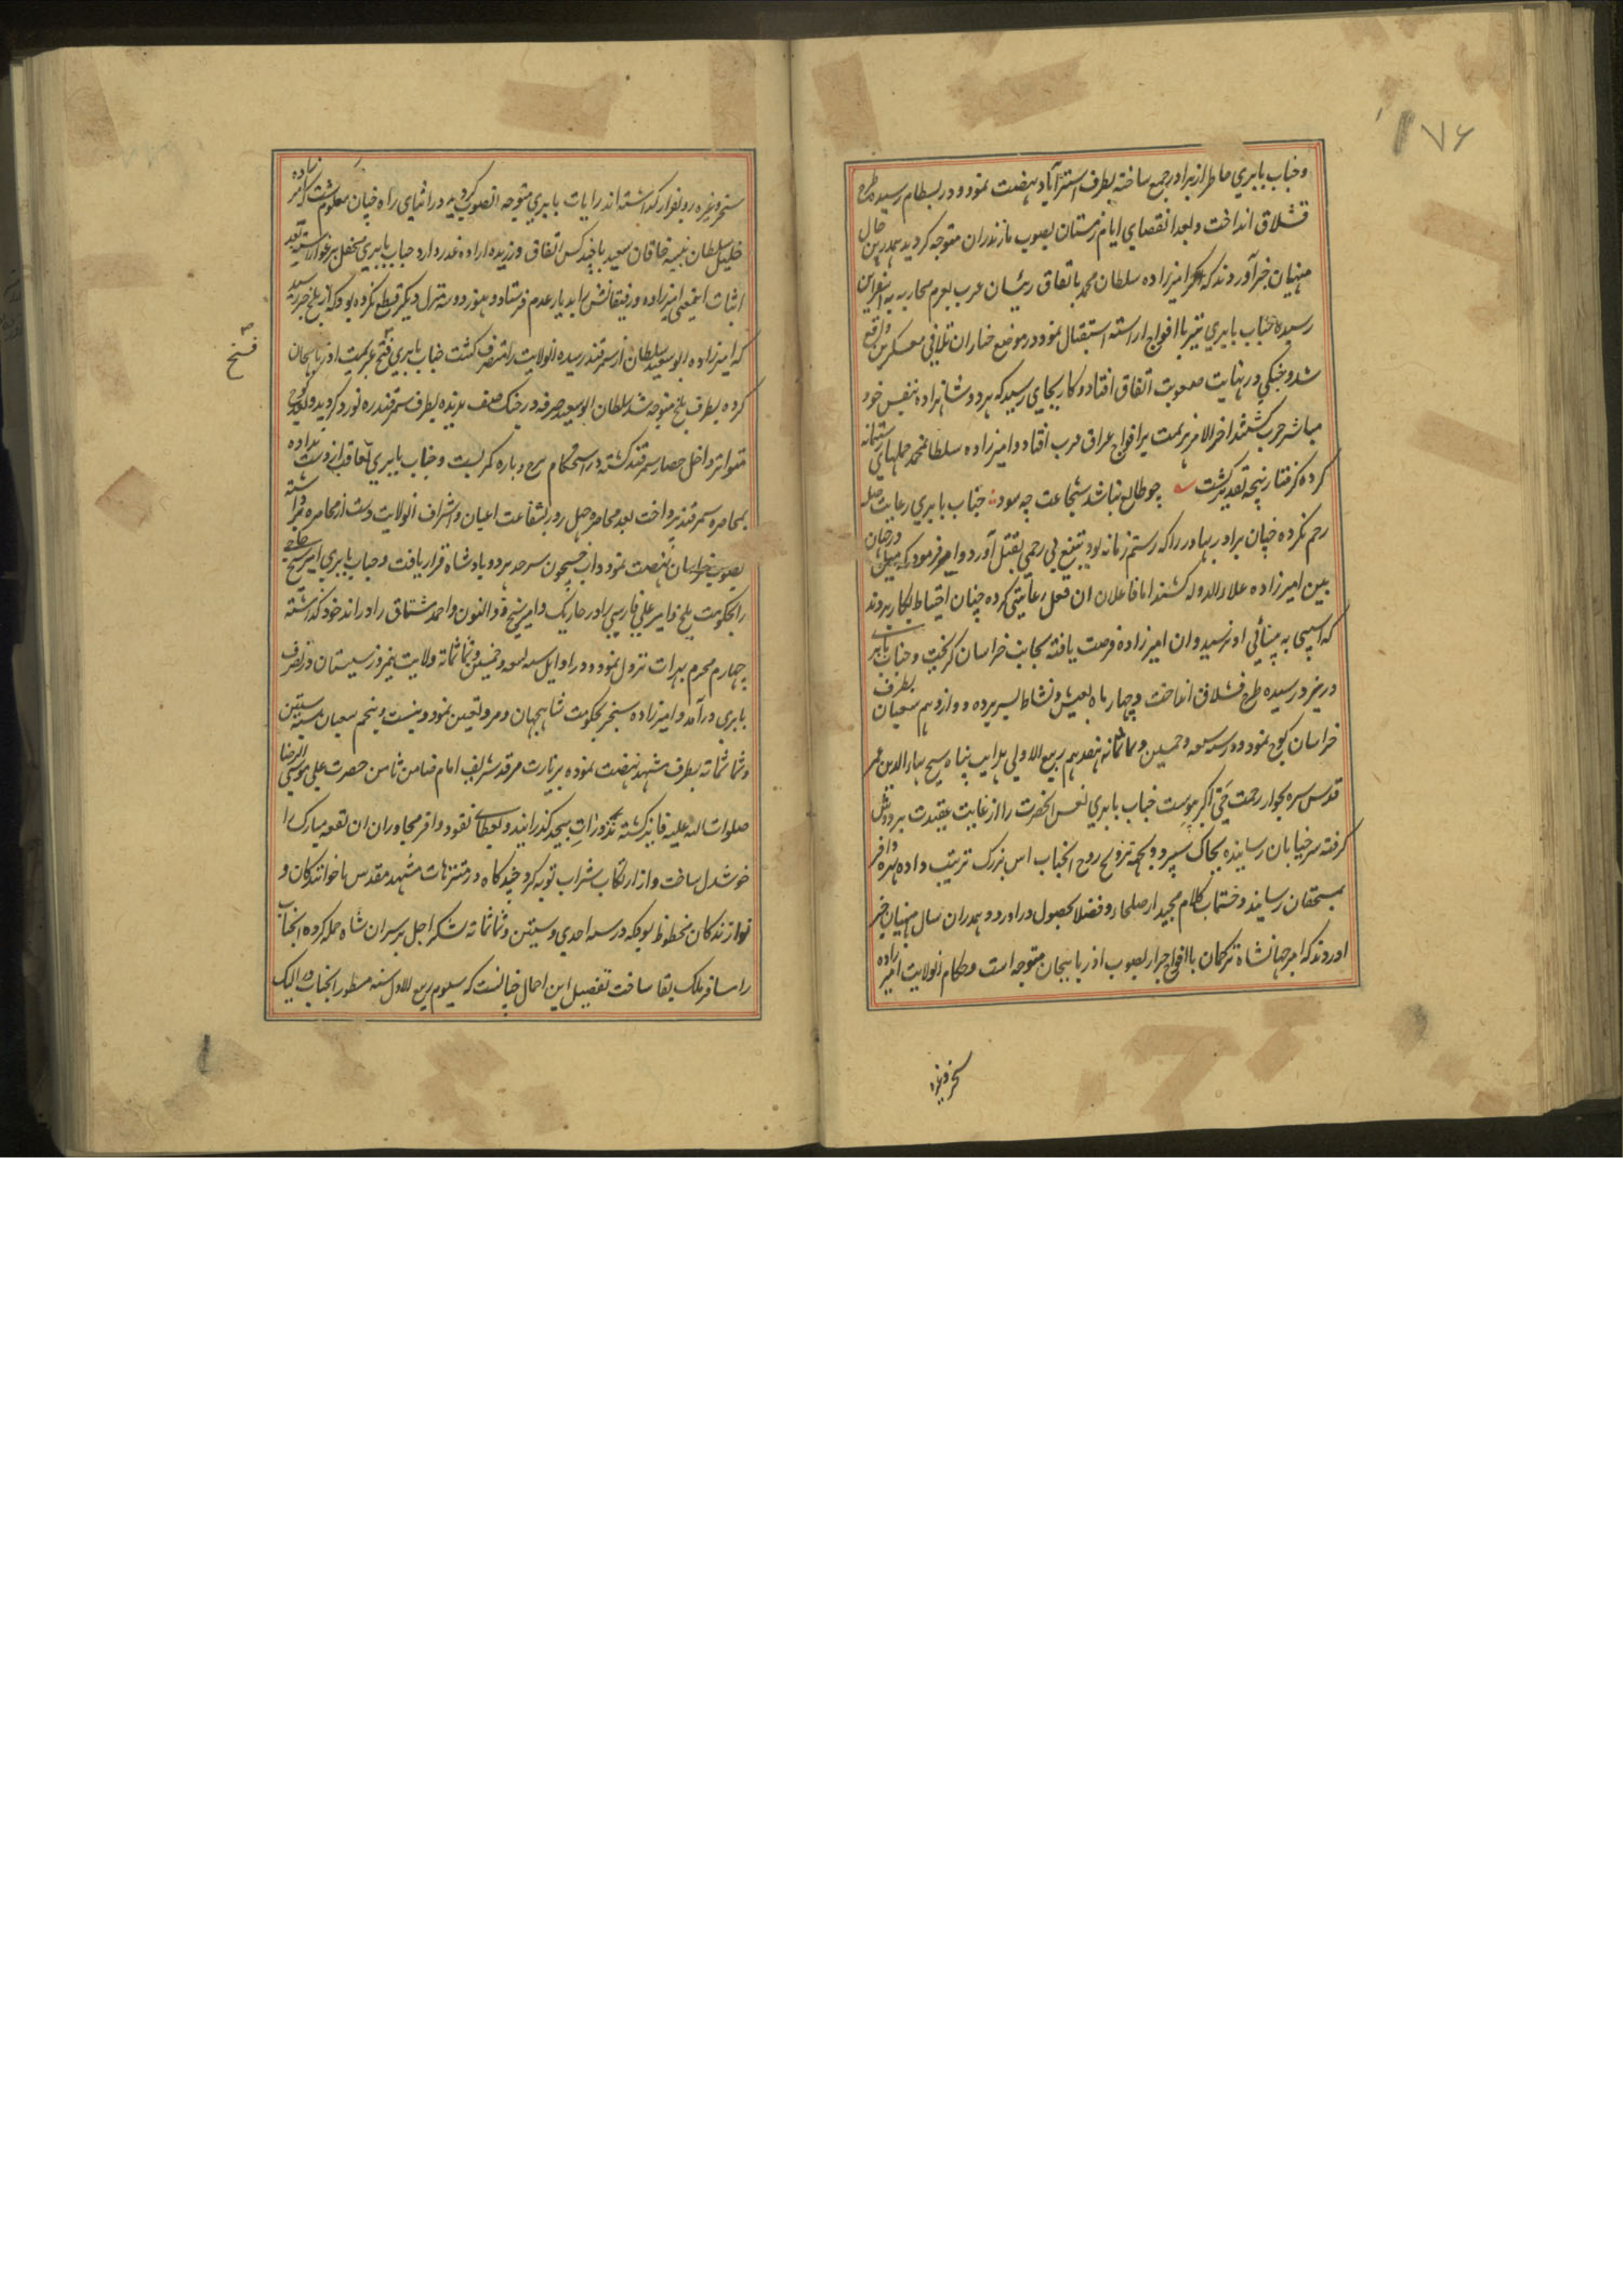 ۷۶
وجناب بابری خاطر از برادر جمع ساخته بطرف استرآباد نهضت نمود و در بسطام رسیده طرح
قشلاق انداخت و بعد انقضای ایام زمستان بصوب مازندران متوجه کردید همدرین حال
منهیان خبر آوردند که امیرزاده سلطان محمد باتفاق رئیسان عرب بعزم محاربه به اسفراین
رسیده جناب بابری نیز با افواج اراسته استقبال نمود در موضع خباران تلاقی معسکرین واقع
شد و جنگی در نهایت صعوبت اتفاق افتاد و کار بجای رسید که هر دو شاهزاده بنفس خود
مباشر حرب کشتند اخر الامر هزیمت بر افواج عراق عرب افتاد و امیرزاده سلطانمحمد حملهای رستمانه
کرده کرفتار پنجه تقدیر کشت چو طالع نباشد شجاعت چه سود جناب بابری رعایت صله
رحم نکرده چنان برادر بهادر را که رستم زمانه بود بتیغ بی رحمی بقتل آورد و امر فرمود که میل در چشمان جهان
بین امیرزاده علاءالدوله کشند اما فاعلان ان فعل رعایتی کرده چنان احتیاط بکار بردند
که اسیبی به بینائی او نرسید وان امیرزاده فرصت یافته بجانب خراسان کریخت و جناب بابری
در یزد رسیده طرح قشلاق انداخت و چهار ماه بعیش و نشاط بسر برده دوازدهم شعبان بطرف
خراسان کوچ نمود و در سنه سبعه و خمسین و ثمانمائه هفدهم ربیع الاولی هدایت پناه شیخ بهاء الدین عمر
قدس سره بجوار رحمت حق اکبر پیوست جناب بابری نعش انحضرت را از غایت عقیدت بر دوش
کرفته سر خیابان رسانیده بخاک سپرد و بجهه ترویح روح انجناب اش بزرک ترتیب داده بهره وافر
بمستحقان رسانید و ختمات کلام مجید از صلحاء و فضلا بحصول در اورد و همدران سال منهیان خبر
اوردند که امیر جهانشاه ترکمان با افواج جرار بصوب اذربایجان متوجه است و حکام انولایت امیرزاده
سنجر وغیره
سنجر وغیره رو بفرار کذاشته اند رایات بابری متوجه انصوب کردید در اثنای راه چنان معلوم شد که امیرزاده
خلیل سلطان نبیسه خاقان سعید با چند کس اتفاق ورزیده اراده غدر دارد جناب بابری
اثبات اینمعنی امیرزاده و رفیقانش را بدیار عدم فرستاد و هنوز دو سه منزل دیکر قطع نکرده بود که از بلخ خبر رسید
که امیرزاده ابوسعید سلطان از سمرقند رسیده انولایت را متصرف کشت جناب بابری فتح عزیمت اذربایجان
فسخ
کرده بطرف بلخ متوجه شد سلطان ابوسعید صرفه در جنک صف ندیده بطرف سمرقند ره نورد کردید و بکوچ
متواتر داخل حصار سمرقند کشته در استحکام برج و باره کمر بست و جناب بابری تعاقب از دست نداده
بمحاصره سمرقند پرداخت بعد محاصره چهل روز بشفاعت اعیان و اشراف انولایت دست از محاصره برداشته
بصوب خراسان نهضت نمود و اب جیحون سرحد هر دو بادشاه قرار یافت و جناب بابری امیر شیخ حاجی
را بحکومت بلخ و امیر علی فارسی برادر جاریک و امیر شیخ ذوالنون و احمد مشتاق را در اندخود کذاشته
چهارم محرم بهرات نزول نمود و در اوایل سنه تسعه و خمسین و ثمانمائه ولایت نیمروز سیستان در تصرف
بابری درآمد و امیرزاده سنجر بحکومت شاهجهان و مرو تعین نمود و بیست و پنجم شعبان سنه ستین
وثمانمائه بطرف مشهد نهضت نموده بزیارت مرقد شریف امام ضامن ثامن حضرت علی موسی الرضا
صلوات الله علیه فایز کشته نذورات بیحد کذرانید و بعطای نقود وافر مجاوران ان بقعه مبارک را
خوشدل ساخت و از ارتکاب شراب توبه کرد و چند کاه در متنزهات مشهد مقدس با خوانندکان و
نوازندکان محظوظ بود که در سنه احدی و ستین و ثمانمائه لشکر اجل بر سر ان شاه حمله کرده انجناب
را مسافر ملک بقا ساخت تفصیل این اجمال چنانست که سیوم ربیع الاول سنه مسطور انجناب